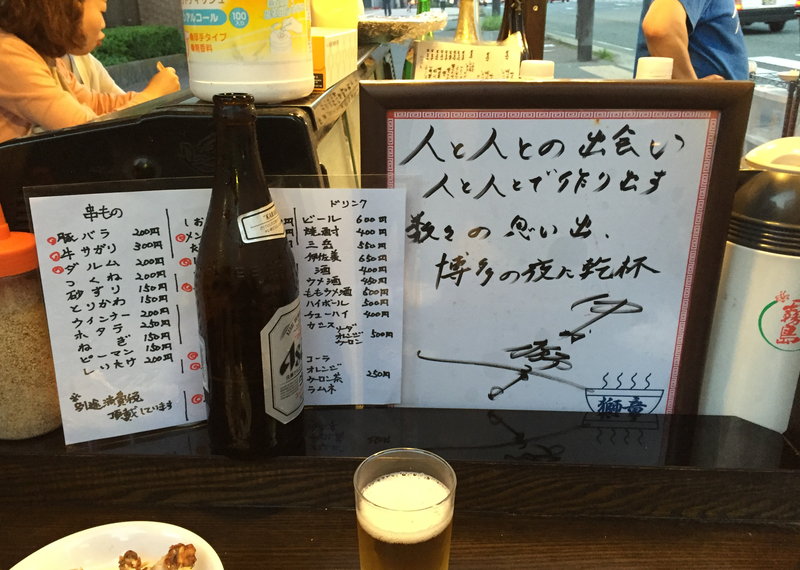 アルコール
100
厚手タイプ
無香料
人と人との出会い
人と人とで作り出す
数々の思い出、
博多の夜に乾杯
獅章
串もの
豚バラ 200円
牛サガリ 300円
ダルム 200円
つくね 200円
砂ずり 150円
とりかわ 150円
ウインナー 200円
ホタテ 250円
ねぎ 150円
ピーマン 150円
しいたけ 200円
※別途消費税
頂戴しています
ドリンク
ビール 600円
焼酎 400円
三岳 550円
伊佐美 650円
酒 400円
ウメ酒 450円
ももウメ酒 500円
ハイボール 500円
チューハイ 400円
カシス ソーダ
オレンジ 500円
ウーロン
コーラ
オレンジ
ウーロン茶 250円
ラムネ
霧島